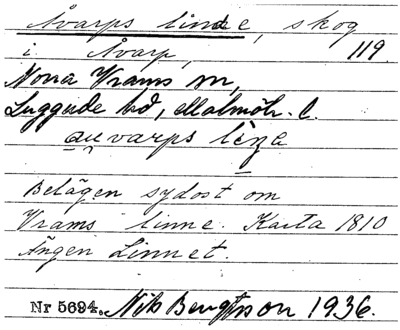 Åvarps linde, skog
i Åvarp, 119.
Norra Vrams sn,
Luggude hd, Malmöh. l.
au̯varps lèŋe
Belägen sydost om
Vrams linne. Karta 1810
Ängen Linnet.
Nr 5694. Nils Bengtsson 1936.